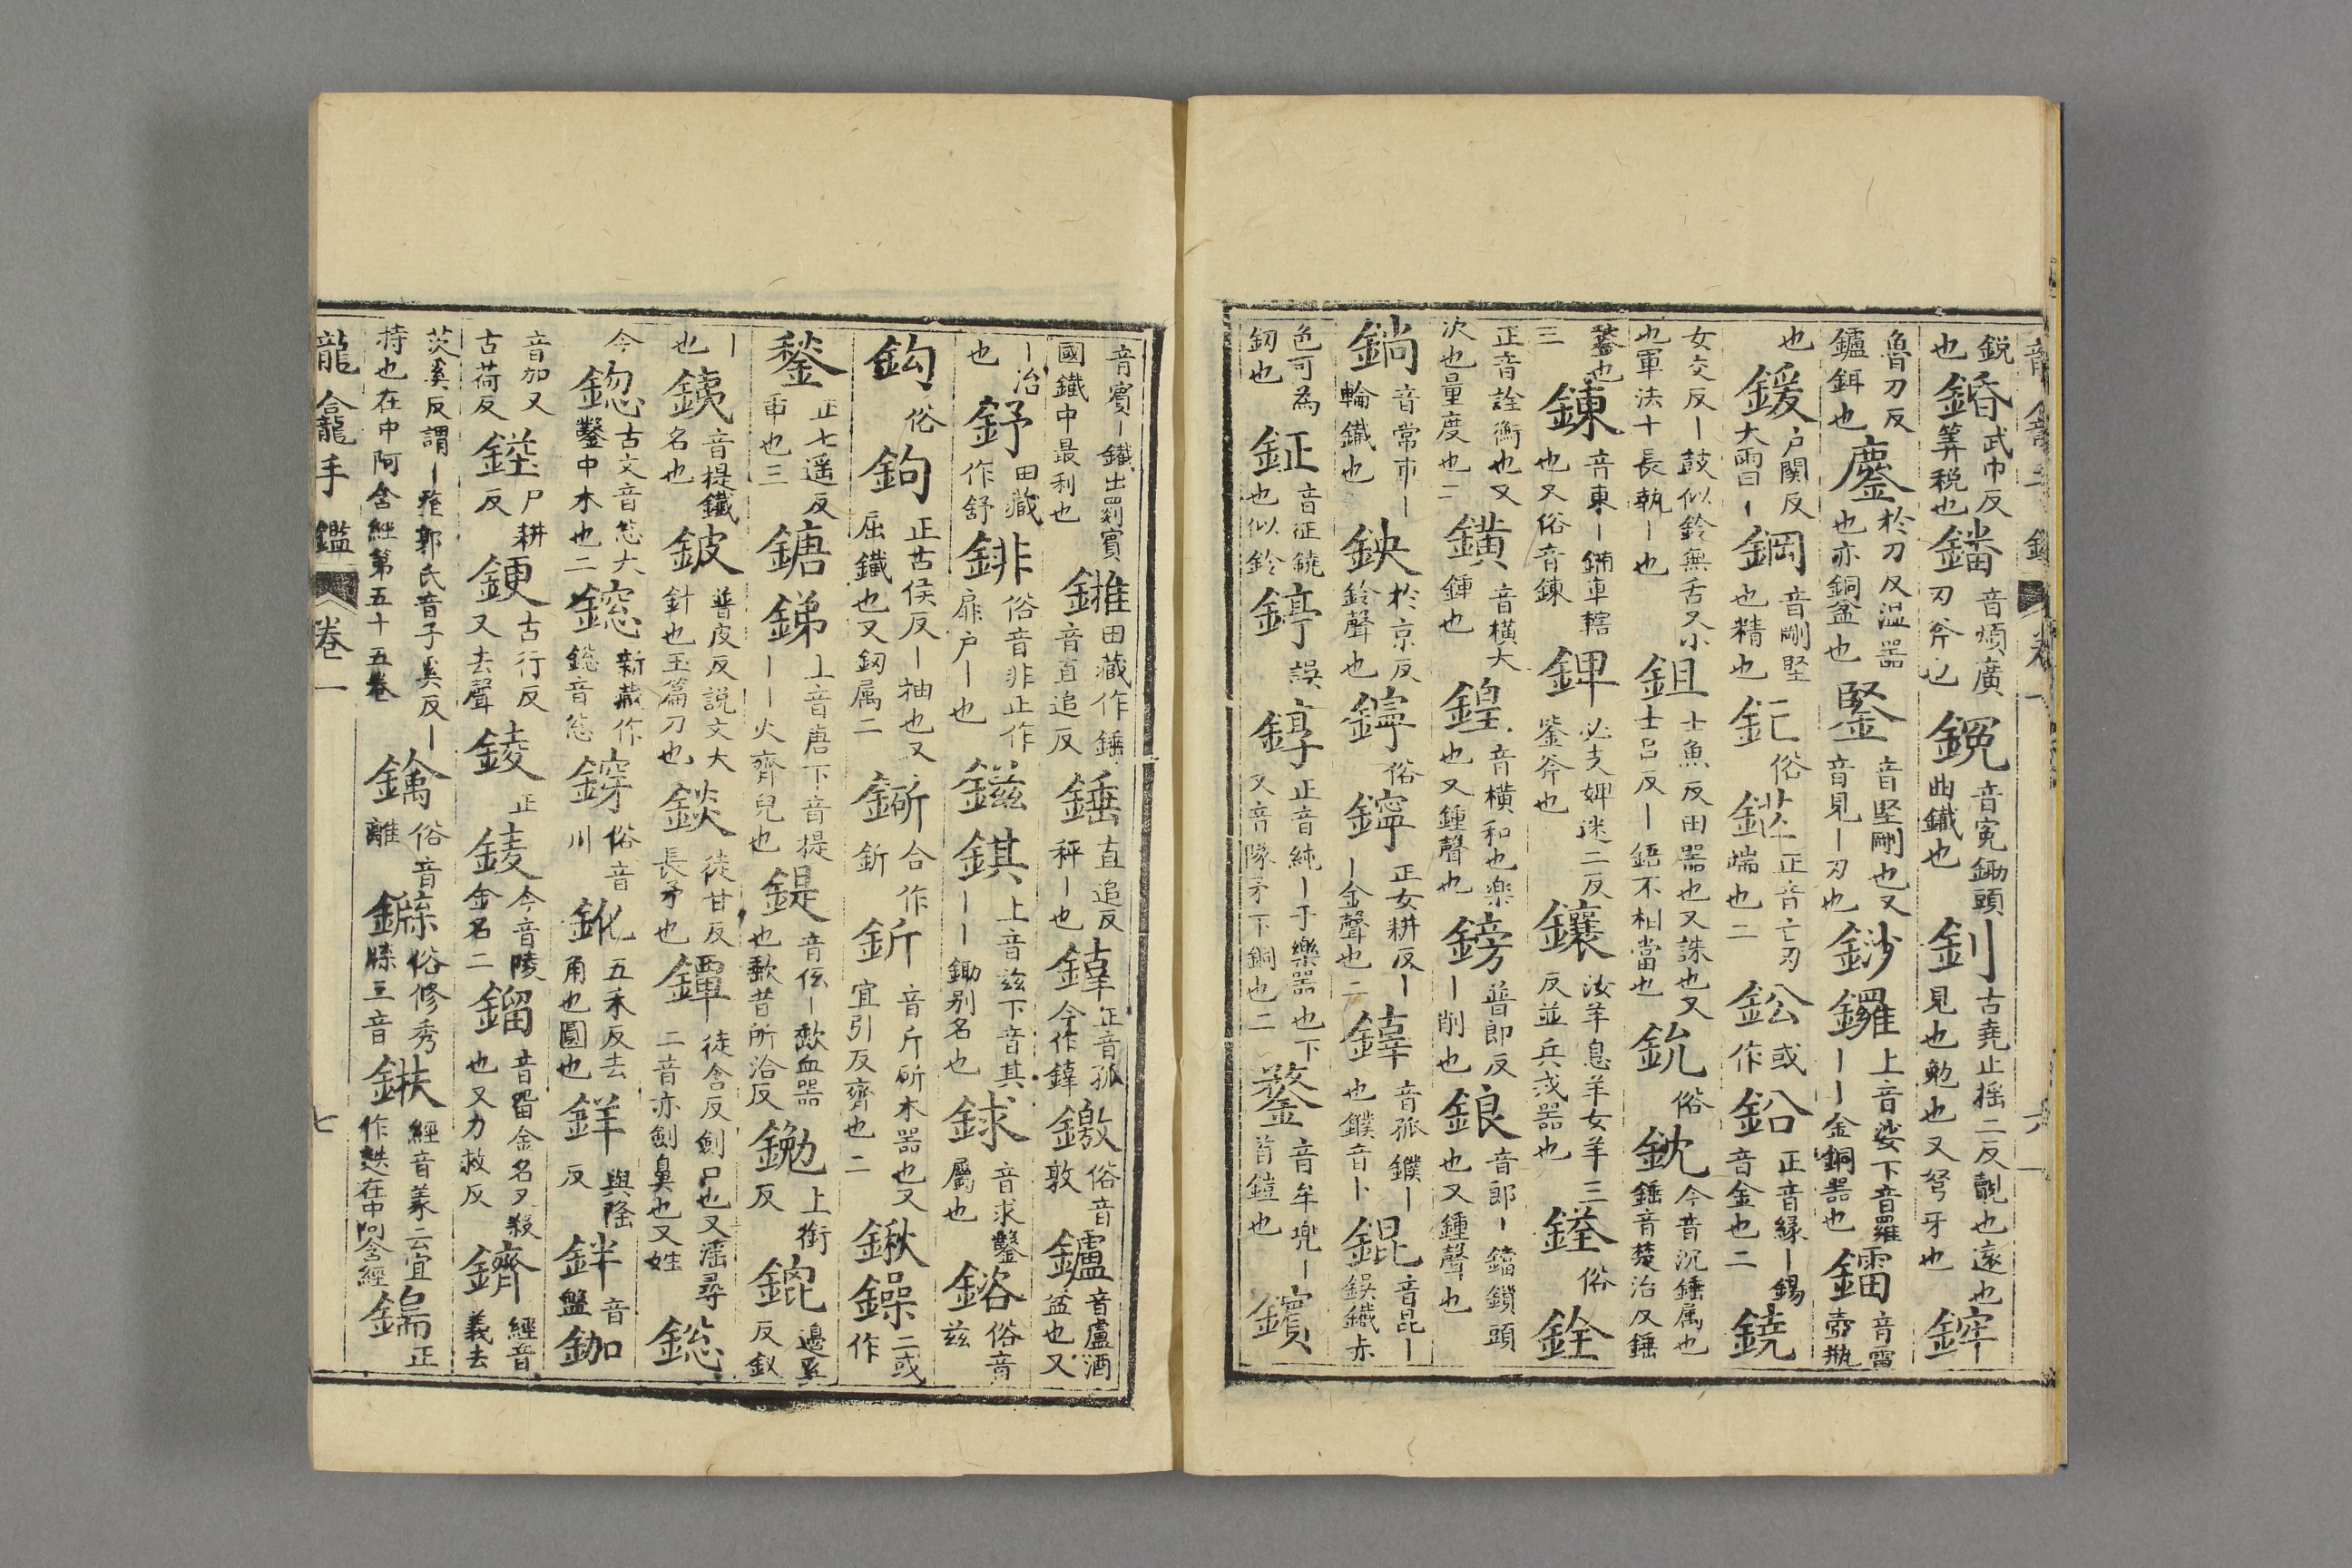 鋭也鍲武巾反筭税也鐇音煩廣刃斧也鋺音寃鋤頭曲鐵也釗古堯止揺二反覿也遠也見也勉也又弩牙也鋅
魯刀反鑪鉺也鏖於刀反温器也亦銅盆也鋻音堅剛也又音見丨刃也鈔鑼上音娑下音羅丨丨金銅器也鐳音雷壺瓶
也鍰户関反大兩曰丨鋼音剛堅也精也釯俗鋩正音亡刃端也二鈆或作鉛正音縁丨錫音金也二鐃
女交反丨鼓似鈴無舌又小也軍法十長執丨也鉏士魚反田器也又誅也又士吕反丨鋙不相當也鈗俗鈂今音沉錘属也錘音莖治反錘
鏊也三鍊音東丨鐗車轄也又俗音鍊錍必支婢迷二反鋻斧也鑲汝羊息羊女羊三反並兵戎器也鐙俗銓
正音詮衡也又次也量度也二鐄音横大鍾也鍠音横和也樂也又鍾聲也鎊普郎反丨削也鋃音郎丨鐺鎖頭也又鍾聲也
鋿音常市丨輪鐵也鉠於京反鈴聲也鑏俗鑏正女耕反丨丨金聲也二鏲音孤鏷丨也鏷音卜錕音昆丨鋘鐵赤
色可為釰也鉦音征鐃也似鈴錞誤錞正音純丨于樂器也下又音隊矛下銅也二鍪音牟兜丨首鎧也鑌
音賓丨鐵出罽賓國鐵中最利也錐田藏作錘音直追反錘直追反秤丨也鏲正音孤今作鏲鐓俗音敦鑪音盧酒盆也又
丨冶也釪田藏作舒錍俗音非正作扉户丨也鎡錤上音兹下音其丨丨鋤别名也銶音求鑿屬也鎔俗音兹
鈎俗鉤正古侯反丨袖也又屈鐵也又釰属二鏩合作釿釿音斤斫木器也又宜引反齊也二鍬鐰二或作
鍫正七遥反臿也三鎕銻上音唐下音提丨丨火齊皃也鍉音低丨歃血器也歃昔所洽反鋤上衘反鎞邊兮反釵
丨也銕音提鐵名也鈹普皮反説文大針也玉篇刀也錟徒甘反長矛也鐔徒含反劒口也又滛尋二音亦劒鼻也又姓鎴
今鍯古文音怱大鑿中木也二鎴新藏作鍯音怱鎼俗音川鈋五禾反去角也圓也鉡與隆反鉡音盤鉫
音加又古荷反鏗尸耕反鋼古行反又去聲錂正錂今音陵金名二鎦音留金名又殺也又力救反鑇經音義去
茨奚反謂丨稚郭氏音子奚反丨持也在中阿含經第五十五卷鏋俗音離鏼俗修秀滌三音鏃經音義云宜作鏃在中阿含經鍴正
龍龕手鑑 卷一 七